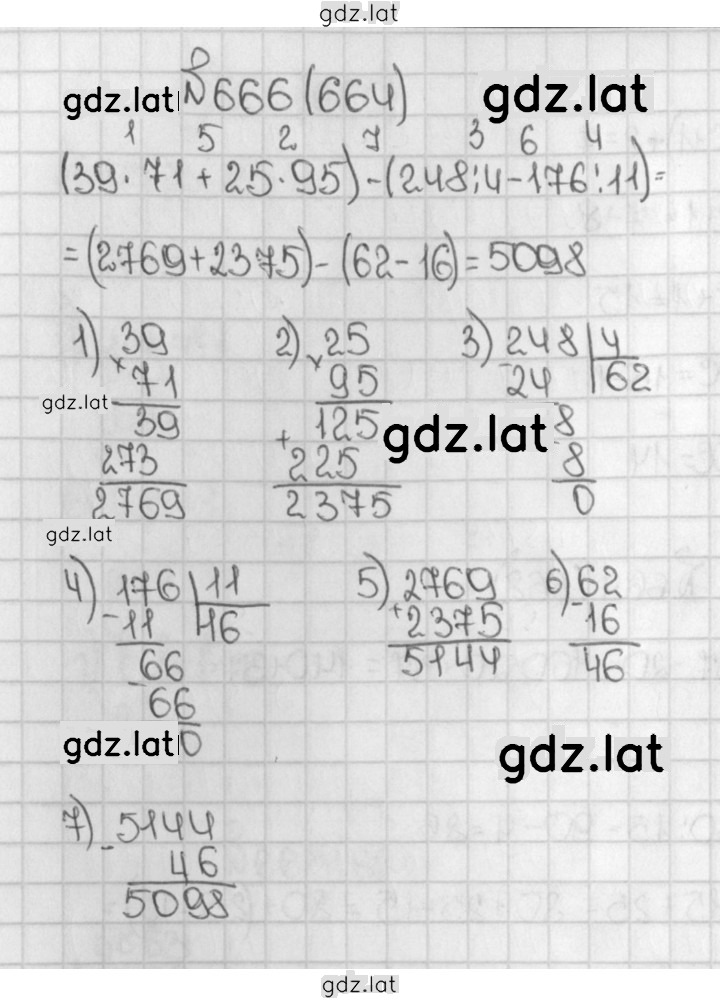 gdz.lat
gdz.lat №666 (664) gdz.lat
1 5 2 7 3 6 4
(39·71+25·95)-(248:4-176:11)=
=(2769+2375)-(62-16)=5098
1) 39 2) 25 3) 248 | 4
× 71 × 95 - 24 | 62
gdz.lat 39 125 gdz.lat 8
273 + 225 - 8
2769 2375 0
gdz.lat
4) 176 | 11 5) 2769 6) 62
- 11 | 16 + 2375 - 16
66 5144 46
- 66
gdz.lat 0 gdz.lat
7) 5144
- 46
5098
gdz.lat